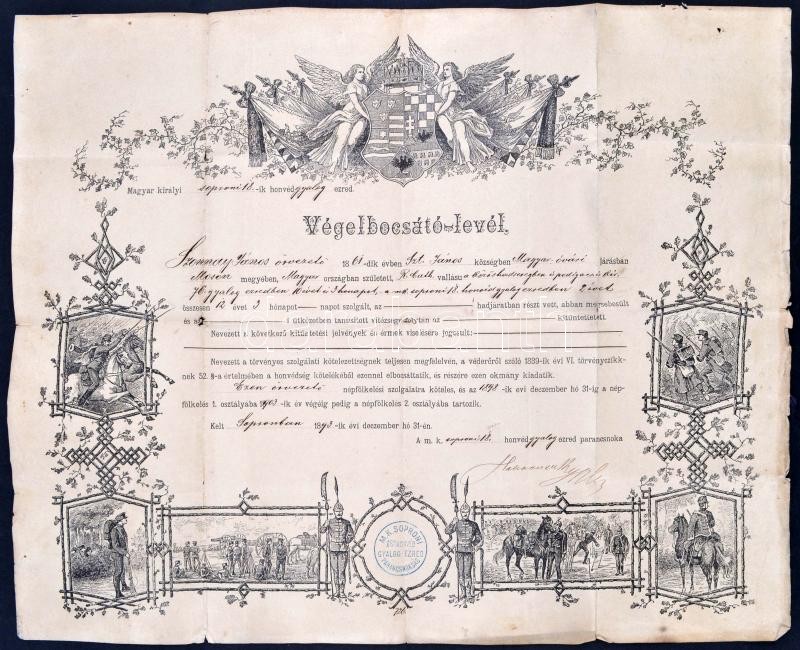 Magyar királyi soproni 18.-ik honvédgyalog ezred.
Végelbocsátó-levél.
Szonnay János őrvezető 1861-dik évben Szt. János községben Magyar óvári járásban
Moson megyében, Magyar országban született, R. Cath. vallású a
76 gyalog ezredben 10 évet és 3 hónapot, a m. k. soproni 18. honvédgyalogezredben 2 évet
összesen 12 évet 3 hónapot napot szolgált, az hadjáratban részt vett, abban megsebesült
és az ütközetben tanúsított vitézségéért folytán az kitüntettetett.
Nevezett a következő kitüntetési jelvények és érmek viselésére jogosult:
Nevezett a törvényes szolgálati kötelezettségnek teljesen megfelelvén, a véderőről szóló 1889-ik évi VI. törvényczikk-
nek 52. §-a értelmében a honvédség kötelékéből ezennel elbocsáttatik, és részére ezen okmány kiadatik.
Ezen őrvezető népfölkelési szolgálatra köteles, és az 1898-ik évi deczember hó 31-ig a nép-
fölkelés 1. osztályába 1903-ik év végéig pedig a népfölkelés 2. osztályába tartozik.
Kelt Sopronban 1893-ik évi deczember hó 31-én.
A m. k. soproni 18. honvédgyalog ezred parancsnoka
M. K. SOPRONI
GYALOG-EZRED
PARANCSNOKSÁG